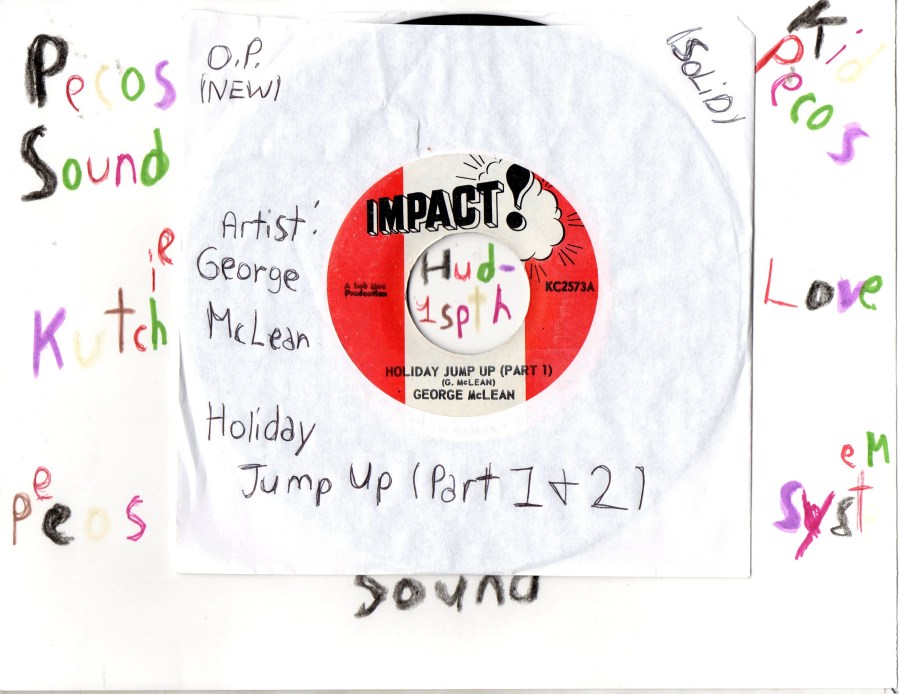 Pecos
Sound
Kutchie
Pecos
O.P.
(NEW)
(SOLID)
Artist:
George
McLean
Holiday
Jump Up (Part 1 + 2)
IMPACT!
A bob lee
Production
KC2573A
Hud-
1spth
HOLIDAY JUMP UP (PART 1)
(G. McLEAN)
GEORGE McLEAN
Kid
Pecos
Love
System
Sound